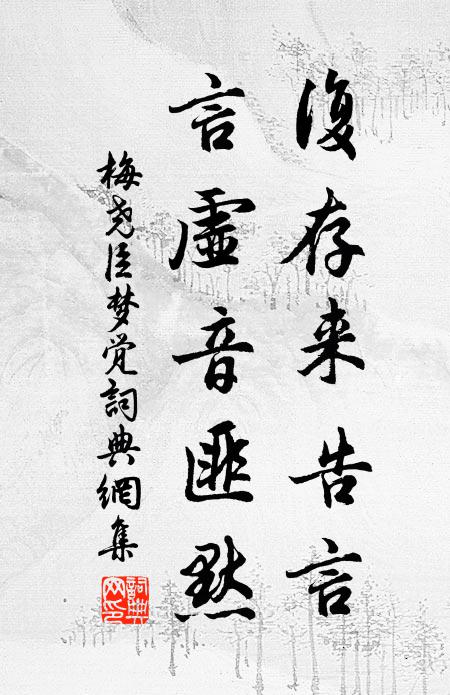 復存来告言
言虛音匪默
梅尧臣梦觉詞典網集
詞典网印